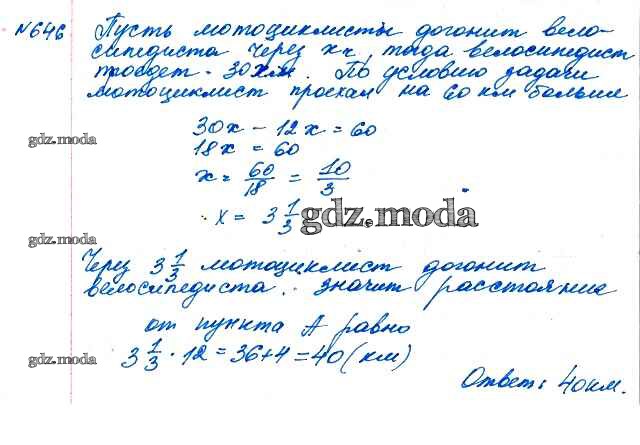 №646 Пусть мотоциклисты догонит вело-
сипедиста через x ч, тогда велосипедист
проедет - 30x км. По условию задачи
мотоциклист проехал на 60 км больше
30x - 12x = 60
gdz.moda
18x = 60
x = 60/18 = 10/3
x = 3 1/3
gdz.moda
gdz.moda
Через 3 1/3 мотоциклист догонит
велосипедиста. значит расстояние
от пункта А равно
3 1/3 · 12 = 36+4 = 40 (км)
gdz.moda
Ответ: 40 км.